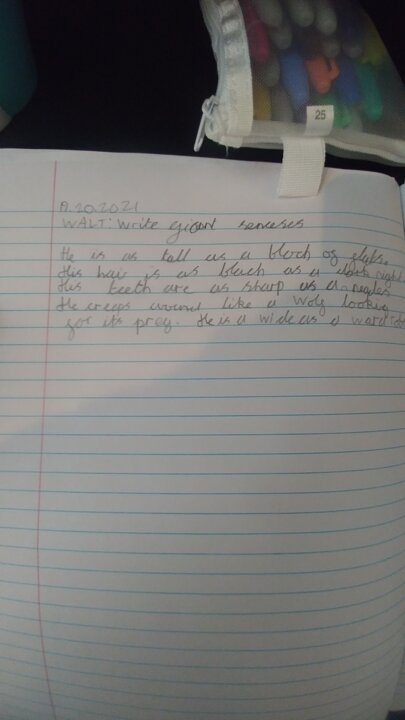 25
WALT: Write giant senceses
He is as tall as a bloch of flats.
His hair is as blach as a dark night
His teeth are as sharp as a needles
He creeps around like a wolf looking
for its prey. He is a wide as a